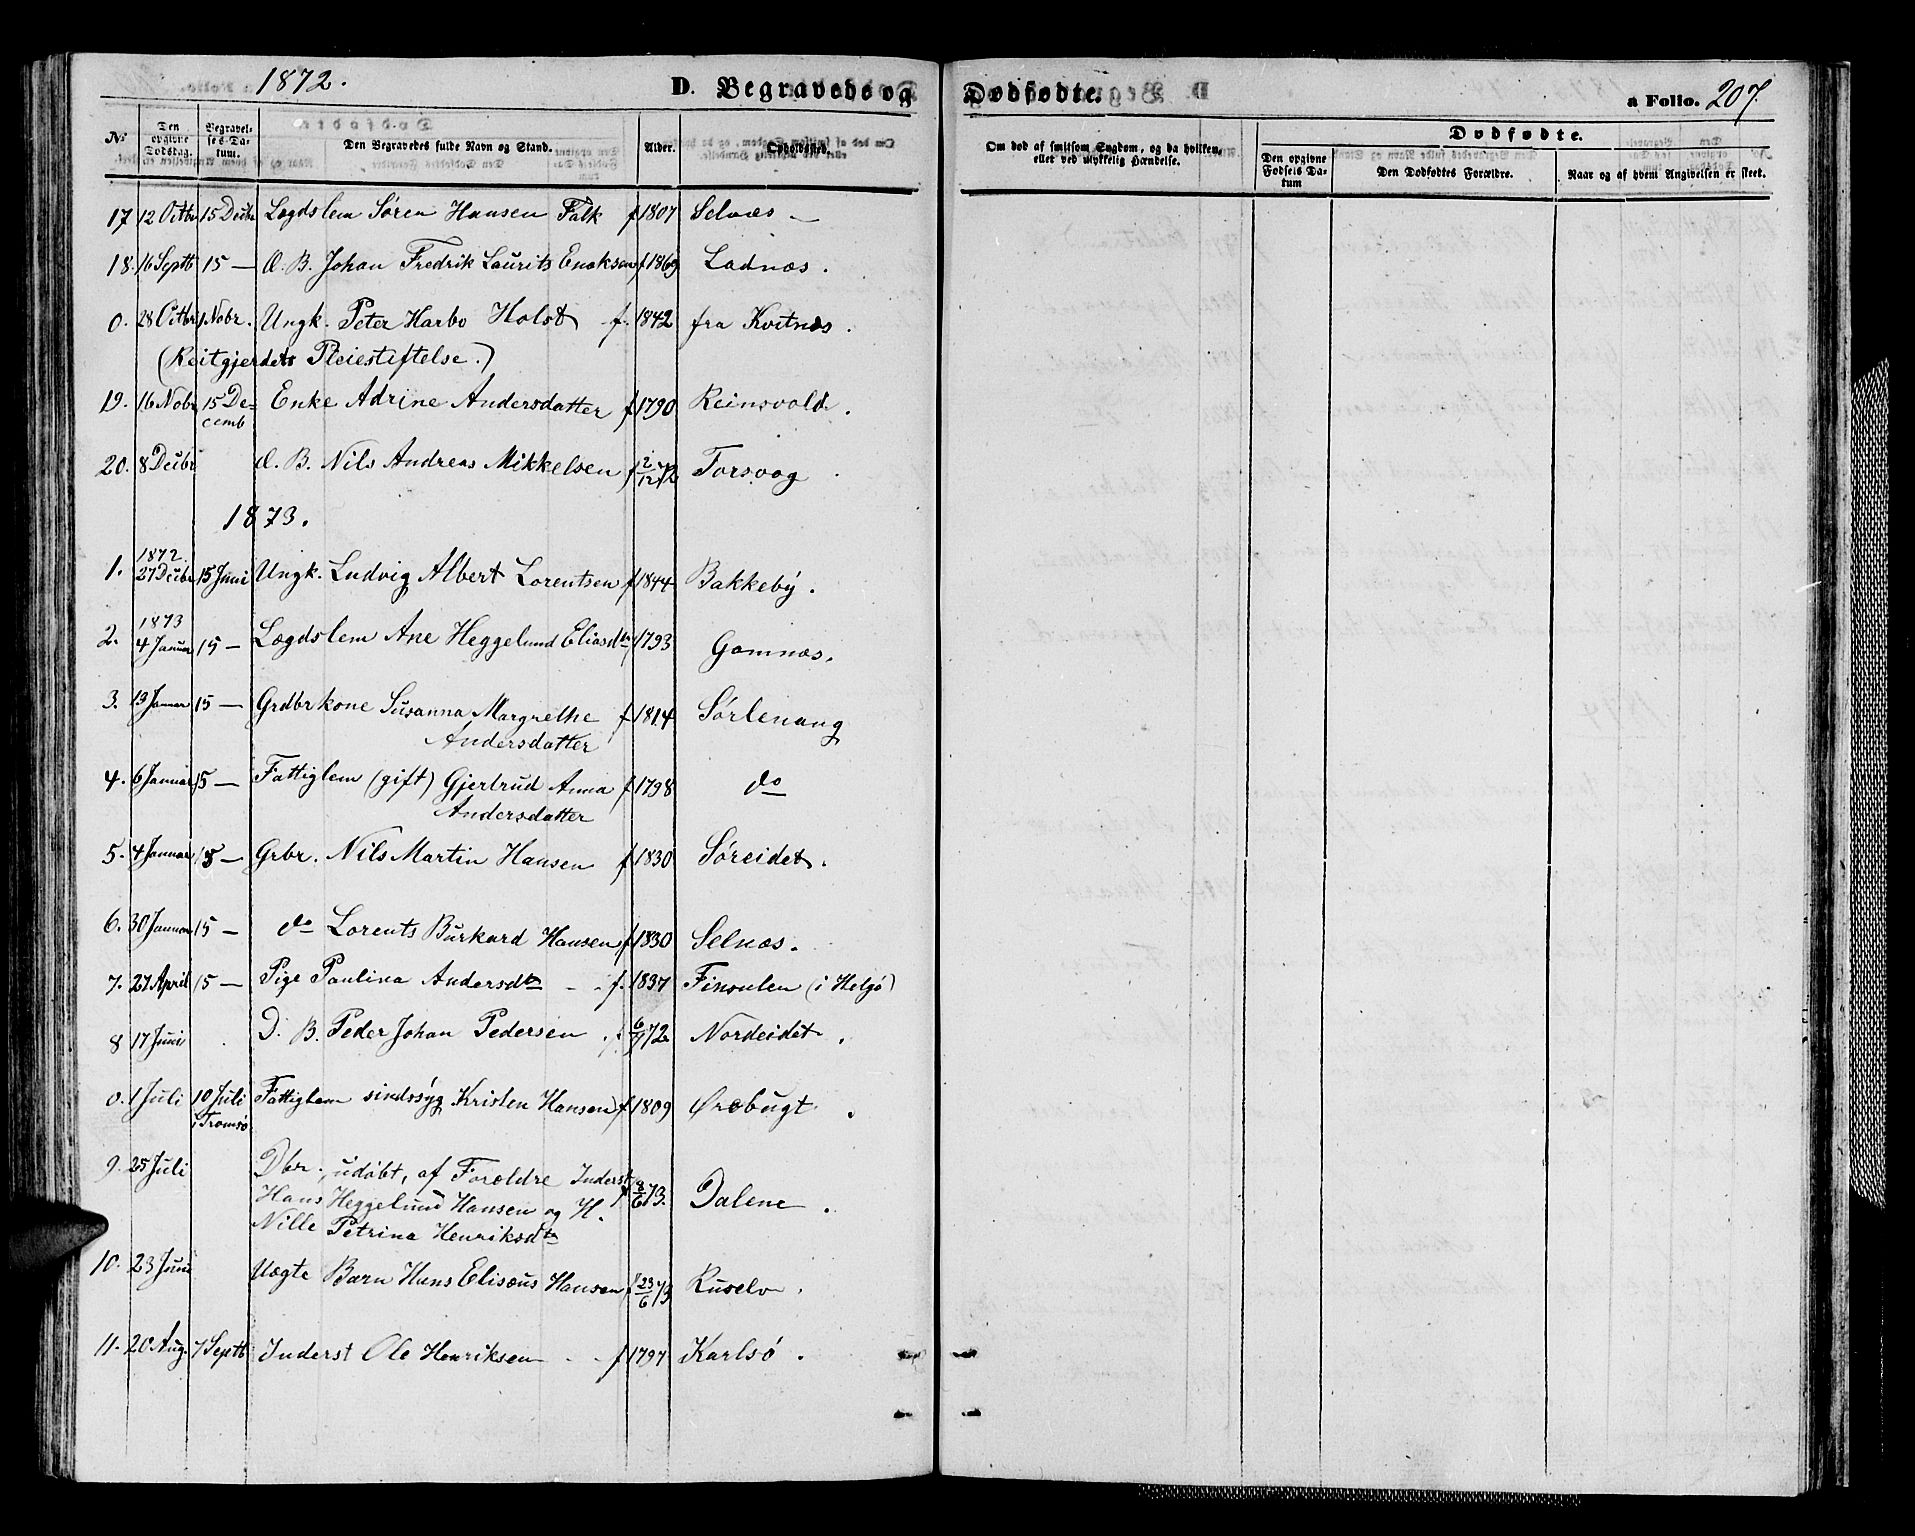 1872.
D. Begravede og Dødfødte.
a Folio. 207.
No
Den opgivne Dødsdag.
Begravelses-Datum.
Den Begravedes fulde Navn og Stand.
Alder.
Opholdssted.
Om død af smitsom Sygdom, og da hvilken, eller ved ulykkelig Hændelse.
Dødfødte.
Den opgivne Fødsels Datum
Den Dødfødtes Forældre.
Naar og af hvem Angivelsen er skeet.
17 12 Octbr 15 Decbr Lægdslem Søren Hansen Falk f 1807 Selnæs —
18. 16 Septb 15 — Æ. B. Johan Fredrik Laurits Enoksen f 1869 Ladnæs.
0. 28 Octbr 1 Nobr. Ungk. Peter Harbo Holst f. 1842 fra Kvitnæs.
(Reitgjerdets Pleiestiftelse.)
19. 16 Nobr 15 De= Enke Adrine Andersdatter f 1790 Reinsvold.
cemb
20. 8 Decbr Æ. B. Nils Andreas Mikkelsen f 2/12 72 Torsvog
1873.
1872
1. 27 Decbr 15 Juni Ungk. Ludvig Albert Lorentsen f 1844 Bakkeby.
1873
2. 4 Januar 15 — Lægdslem Ane Heggelund Eliasdtr 1793 Gamnæs.
3. 13 Januar 15 — Grdbrkone Susanna Margrethe f 1814 Sørlenang
Andersdatter
4. 6 Januar 15 — Fattiglem (gift) Gjertrud Anna f 1798 do
Andersdatter
5. 4 Januar 15 — Grbr. Nils Martin Hansen f 1830 Søreidet.
6. 30 Januar 15 — do Lorents Burkard Hansen f 1830 Selnæs.
7. 27 April 15 — Pige Paulina Andersdtr - - f. 1837 Finsnlen (i Helgø)
8 17 Juni D. B. Peder Johan Pedersen f 6/7 72 Nordeidet.
0. 1 Juli 10 Juli Fattiglem sindssyg Kristen Hansen f 1809 Ørebugt.
i Tromsø
9. 25 Juli Dbr. udøbt, af Forældre Inderst
Hans Heggelund Hansen og H. f 8/6 73. Dalene.
Nille Petrina Henriksdtr
10. 23 Juni Uægte Barn Hans Elisæus Hansen f 23/6 73 Ruselv.
11. 20 Aug. 7 Septb Inderst Ole Henriksen - - f 1797 Karlsø.